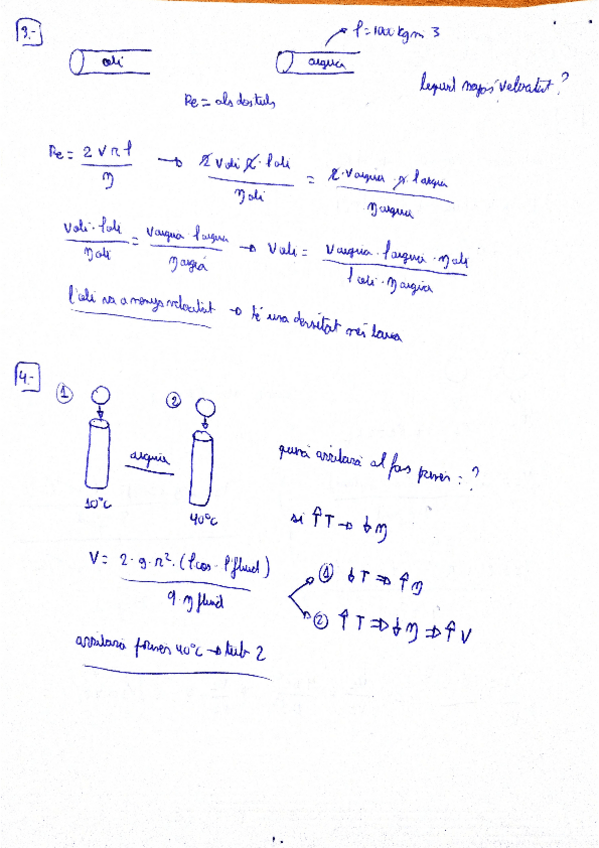 3.-
ρ=1000 kg m 3
oli
aigua
Re = als dos tubs
velocitat?
Re = 2 V r ρ / η → 2 Voli r · ρoli / ηoli = 2 · Vaigua · r ρaigua / ηaigua
Voli · ρoli / ηoli = Vaigua ρaigua / ηaigua → Voli = Vaigua · ρaigua · ηoli / ρoli · ηaigua
l'oli va a menys velocitat → té una densitat més baixa
4.-
1 2
aigua
arribarà al fons primer : ?
10°C
40°C
si ↑T → ↓η
V = 2 · g · r² · (ρcos - ρfluid) / 9 · η fluid
1 ↓T ⇒ ↑η
2 ↑T ⇒ ↓η ⇒ ↑V
arribarà primer 40°C → tub 2